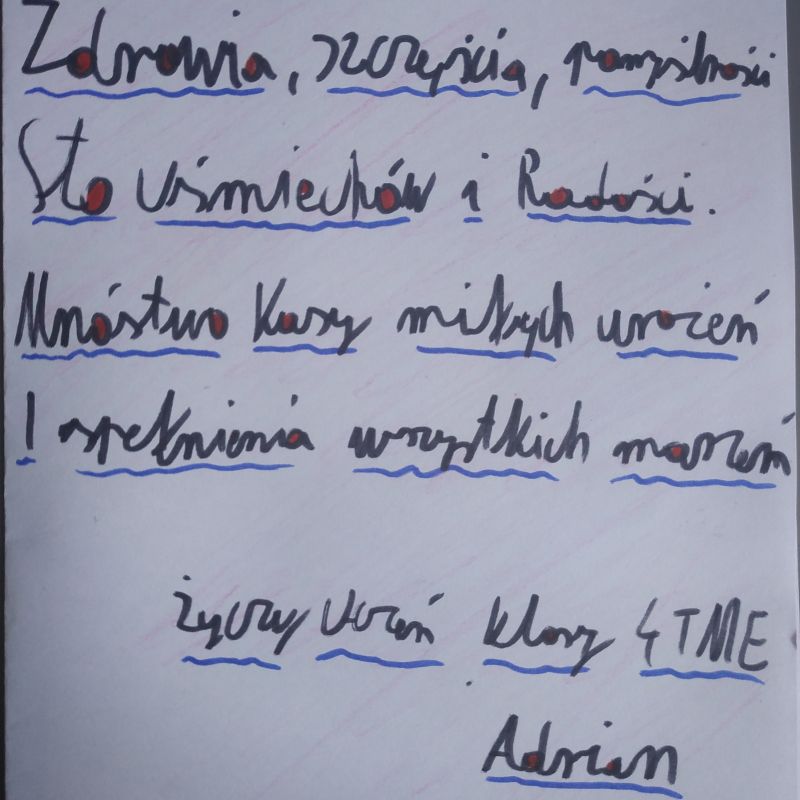 Zdrowia, szczęścia, pomyślności
Sto Uśmiechów i Radości.
Mnóstwo Kasy miłych wrożeń
I spełnienia wszystkich marzeń
życzy Uczeń klasy 4 TME
Adrian